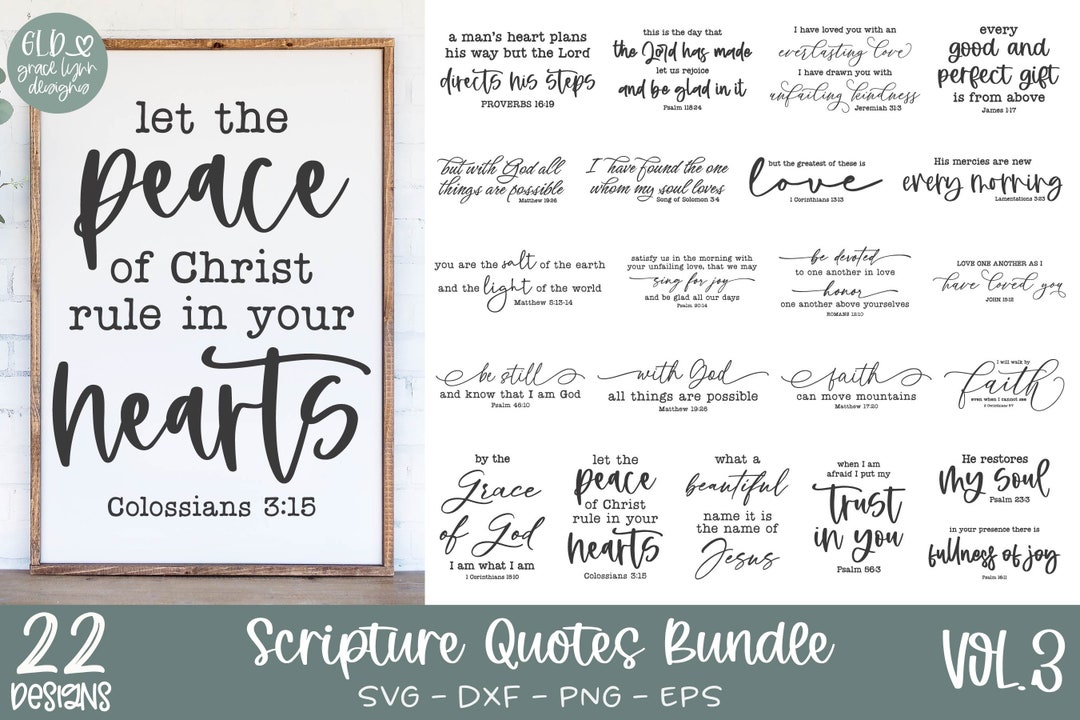 GLD
grace lynn
designs
let the
peace
of Christ
rule in your
hearts
Colossians 3:15
a man's heart plans
his way but the Lord
directs his steps
PROVERBS 16:19
this is the day that
the Lord has made
let us rejoice
and be glad in it
Psalm 118:24
I have loved you with an
everlasting love
I have drawn you with
unfailing kindness
Jeremiah 31:3
every
good and
perfect gift
is from above
James 1:17
but with God all
things are possible
Matthew 19:26
I have found the one
whom my soul loves
Song of Solomon 3:4
but the greatest of these is
love
1 Corinthians 13:13
His mercies are new
every morning
Lamentations 3:23
you are the salt of the earth
and the light of the world
Matthew 5:13-14
satisfy us in the morning with
your unfailing love, that we may
sing for joy
and be glad all our days
Psalm 90:14
be devoted
to one another in love
honor
one another above yourselves
ROMANS 12:10
LOVE ONE ANOTHER AS I
have loved you
JOHN 15:12
be still
and know that I am God
Psalm 46:10
with God
all things are possible
Matthew 19:26
faith
can move mountains
Matthew 17:20
I will walk by
faith
even when I cannot see
2 Corinthians 5:7
by the
Grace
of God
I am what I am
1 Corinthians 15:10
let the
peace
of Christ
rule in your
hearts
Colossians 3:15
what a
beautiful
name it is
the name of
Jesus
when I am
afraid I put my
trust
in you
Psalm 56:3
He restores
my soul
Psalm 23:3
in your presence there is
fullness of joy
Psalm 16:11
22
DESIGNS
Scripture Quotes Bundle
SVG - DXF - PNG - EPS
VOL.3